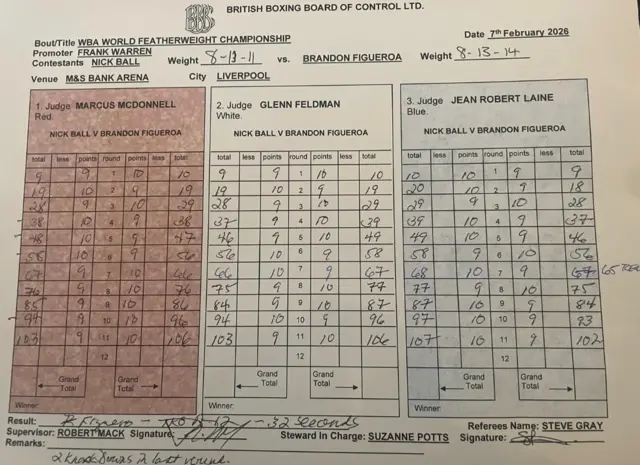 BRITISH BOXING BOARD OF CONTROL LTD.
Bout/Title WBA WORLD FEATHERWEIGHT CHAMPIONSHIP Date 7th February 2026
Promoter FRANK WARREN
Contestants NICK BALL Weight 8-13-11 vs. BRANDON FIGUEROA Weight 8-13-14
Venue M&S BANK ARENA City LIVERPOOL
1. Judge MARCUS MCDONNELL 2. Judge GLENN FELDMAN 3. Judge JEAN ROBERT LAINE
Red. White. Blue.
NICK BALL V BRANDON FIGUEROA NICK BALL V BRANDON FIGUEROA NICK BALL V BRANDON FIGUEROA
total less points round points less total total less points round points less total total less points round points less total
9 9 1 10 10 9 9 1 10 10 10 10 1 9 9
19 10 2 9 19 19 10 2 9 19 20 10 2 9 18
28 9 3 10 29 28 9 3 10 29 29 9 3 10 28
38 10 4 9 38 37 9 4 10 39 39 10 4 9 37
48 10 5 9 47 46 9 5 10 49 49 10 5 9 46
58 10 6 9 56 56 10 6 9 58 58 9 6 10 56
67 9 7 10 66 66 10 7 9 67 68 10 7 9 67 65
76 9 8 10 76 75 9 8 10 77 77 9 8 10 75
85 9 9 10 86 84 9 9 10 87 87 10 9 9 84
94 9 10 10 96 94 10 10 9 96 97 10 10 9 93
103 9 11 10 106 103 9 11 10 106 107 10 11 9 102
12 12 12
Grand Total Grand Total Grand Total Grand Total Grand Total Grand Total
Winner: Winner: Winner:
Result: 32 seconds Referees Name: STEVE GRAY
Supervisor: ROBERT MACK Signature Steward in Charge: SUZANNE POTTS Signature:
Remarks: 2 knock downs in last round.